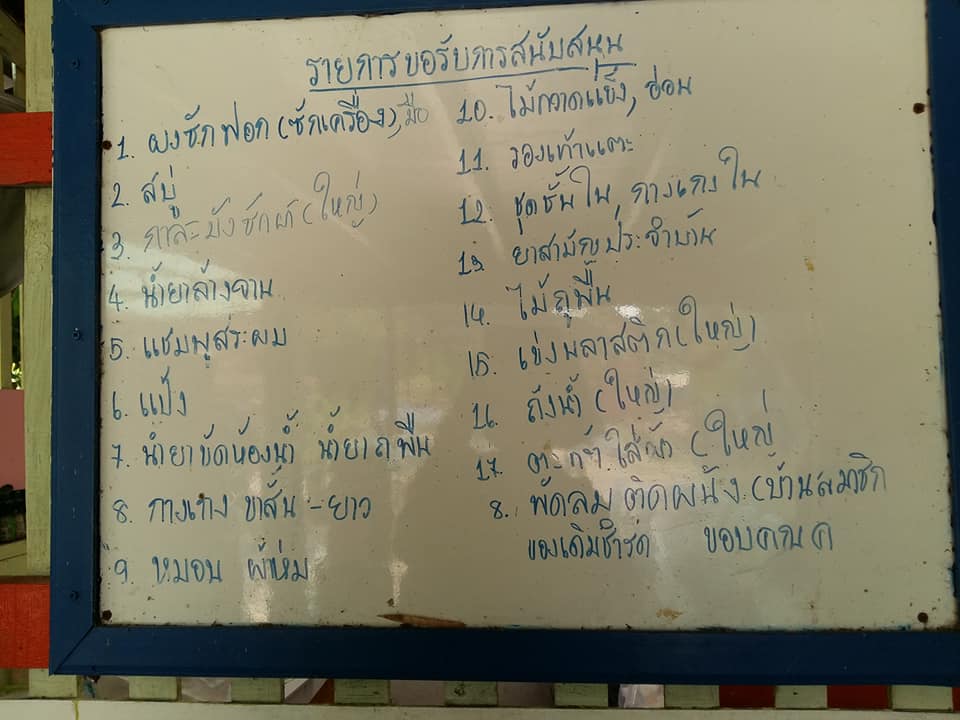 รายการขอรับการสนับสนุน
1. ผงซักฟอก (ซักเครื่อง), มือ
2. สบู่
3. กาละมังซักผ้า (ใหญ่)
4. น้ำยาล้างจาน
5. แชมพูสระผม
6. แป้ง
7. น้ำยาขัดห้องน้ำ น้ำยาถูพื้น
8. กางเกง ขาสั้น - ยาว
9. หมอน ผ้าห่ม
10. ไม้กวาดแข็ง, อ่อน
11. รองเท้าแตะ
12. ชุดชั้นใน, กางเกงใน
13. ยาสามัญประจำบ้าน
14. ไม้ถูพื้น
15. เข่งพลาสติก (ใหญ่)
16. ถังน้ำ (ใหญ่)
17. ตะกร้าใส่ผ้า (ใหญ่
8. พัดลมติดผนัง (บ้านสมาชิก
ของเดิมชำรุด ขอบคุณค